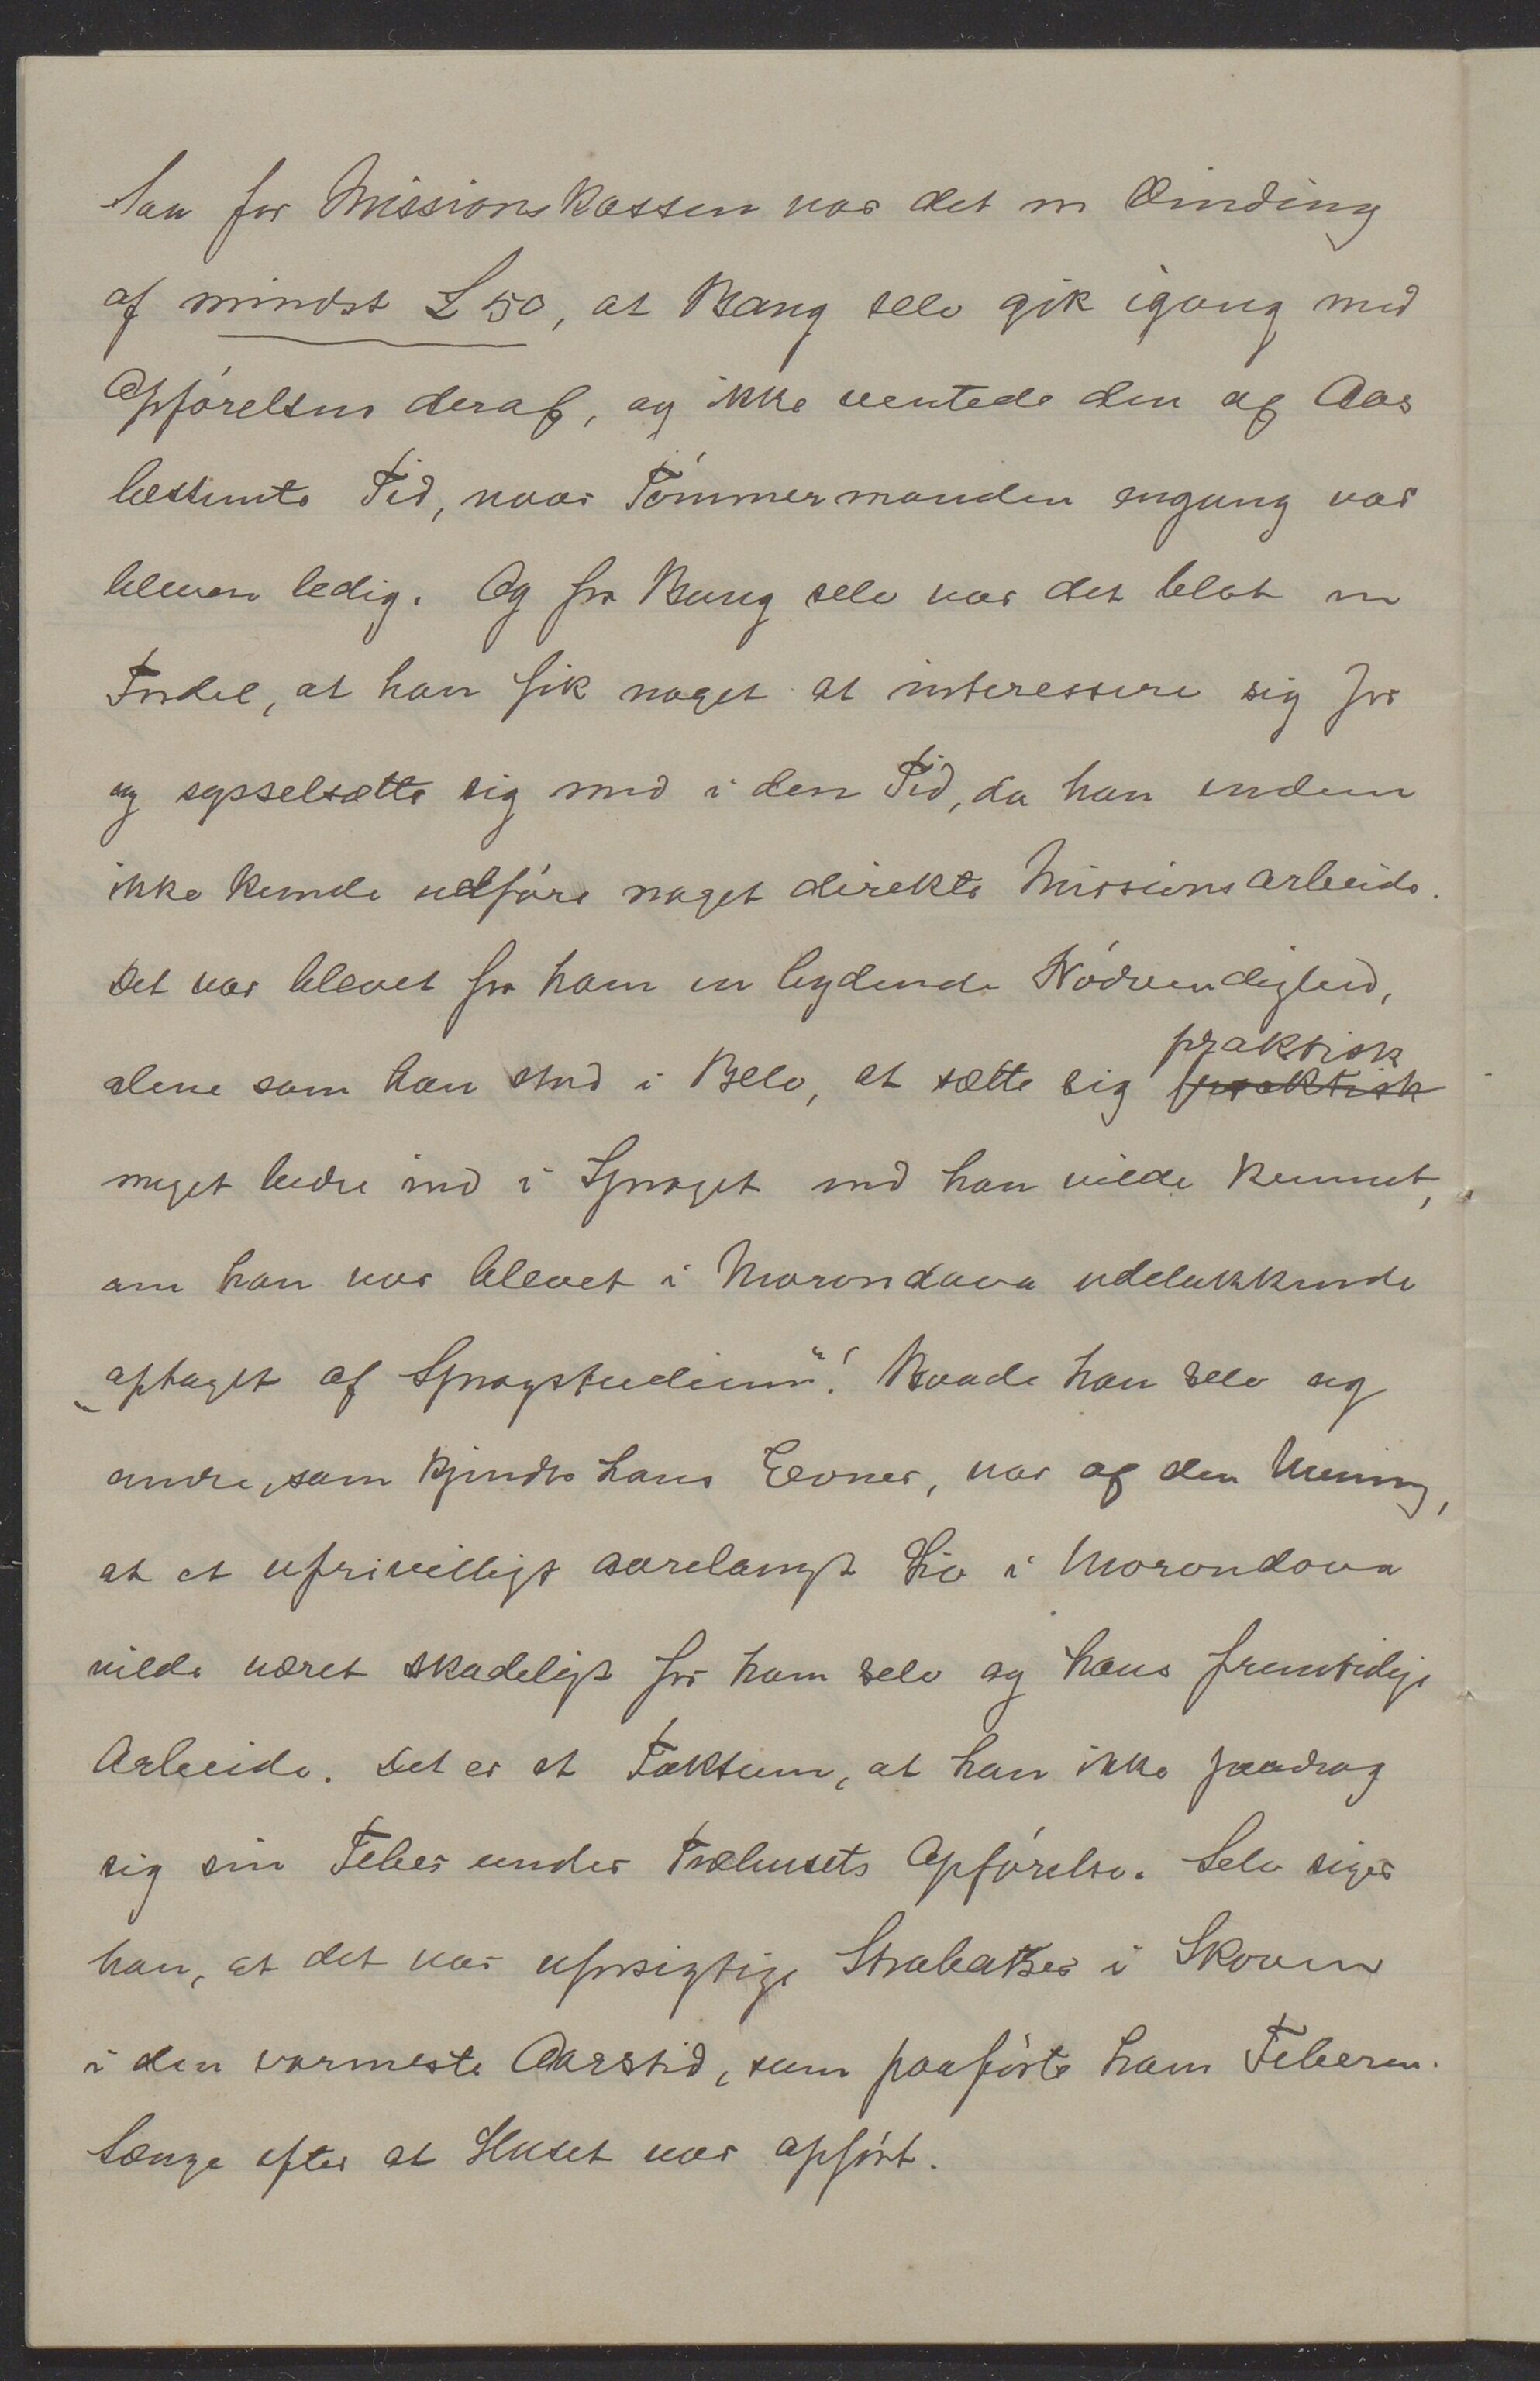 Saa for Missionskassen var det en Vinding
af mindst £ 50, at Bang selv gik igang med
Opførelsen deraf, og ikke ventede den af Aas
bestemte Tid, naar Tømmermanden engang var
bleven ledig. Og for Bang selv var det blot en
Fordel, at han fik noget at interessere sig for
og sysselsætte sig med i den Tid, da han endnu
ikke kunde udføre noget direkte Missionsarbeide.
Det var blevet for ham en bydende Nødvendighed,
praktisk
alene som han stod i Belo, at sætte sig praktisk
meget bedre ind i Sproget end han vilde kunnet,
om han var blevet i Morondava udelukkende
„optaget af Sprogstudium“! Baade han selv og
andre, som kjendte hans Evner, var af den Mening,
at et ufrivilligt aarelangt Liv i Morondava
vilde været skadeligt for ham selv og hans fremtidige
Arbeide. Det er et Faktum, at han ikke paadrog
sig sin Feber under Træhusets Opførelse. Selv siger
han, at det var uforsigtige Strabatser i Skoven
i den varmeste Aarstid, som paaførte ham Feberen.
Længe efter at Huset var opført.